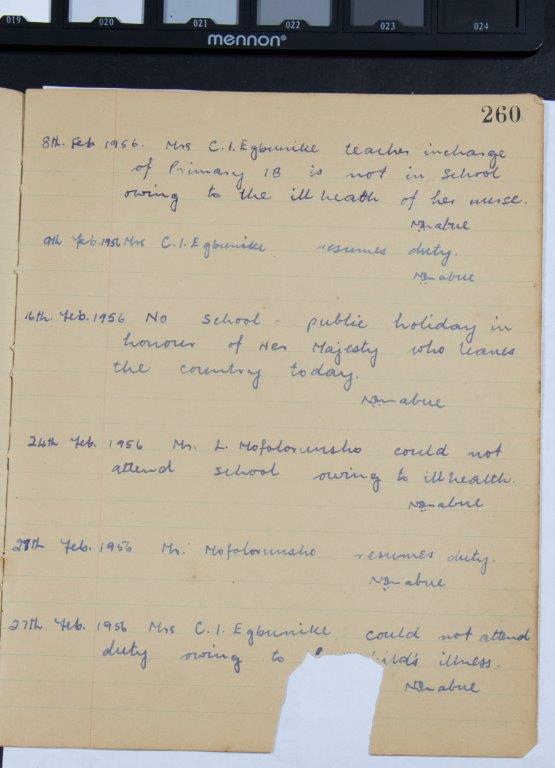 019 020 021 022 023 024
mennon®
260
8th. Feb 1956. Mrs C.I. Egbunike teacher incharge
of Primary 1B is not in School
owing to the ill heath of her nurse.
9th Feb. 1956 Mrs C.I. Egbunike resumes duty.
16th. Feb. 1956 No school - public holiday in
honour of Her Majesty who leaves
the country today.
24th Feb. 1956 Mr. L. Mofolorunsho could not
attend school owing to ill health.
Feb. 1956 Mr. Mofolorunsho resumes duty.
27th Feb. 1956 Mrs C.I. Egbunike could not attend
duty owing to hild's illness.